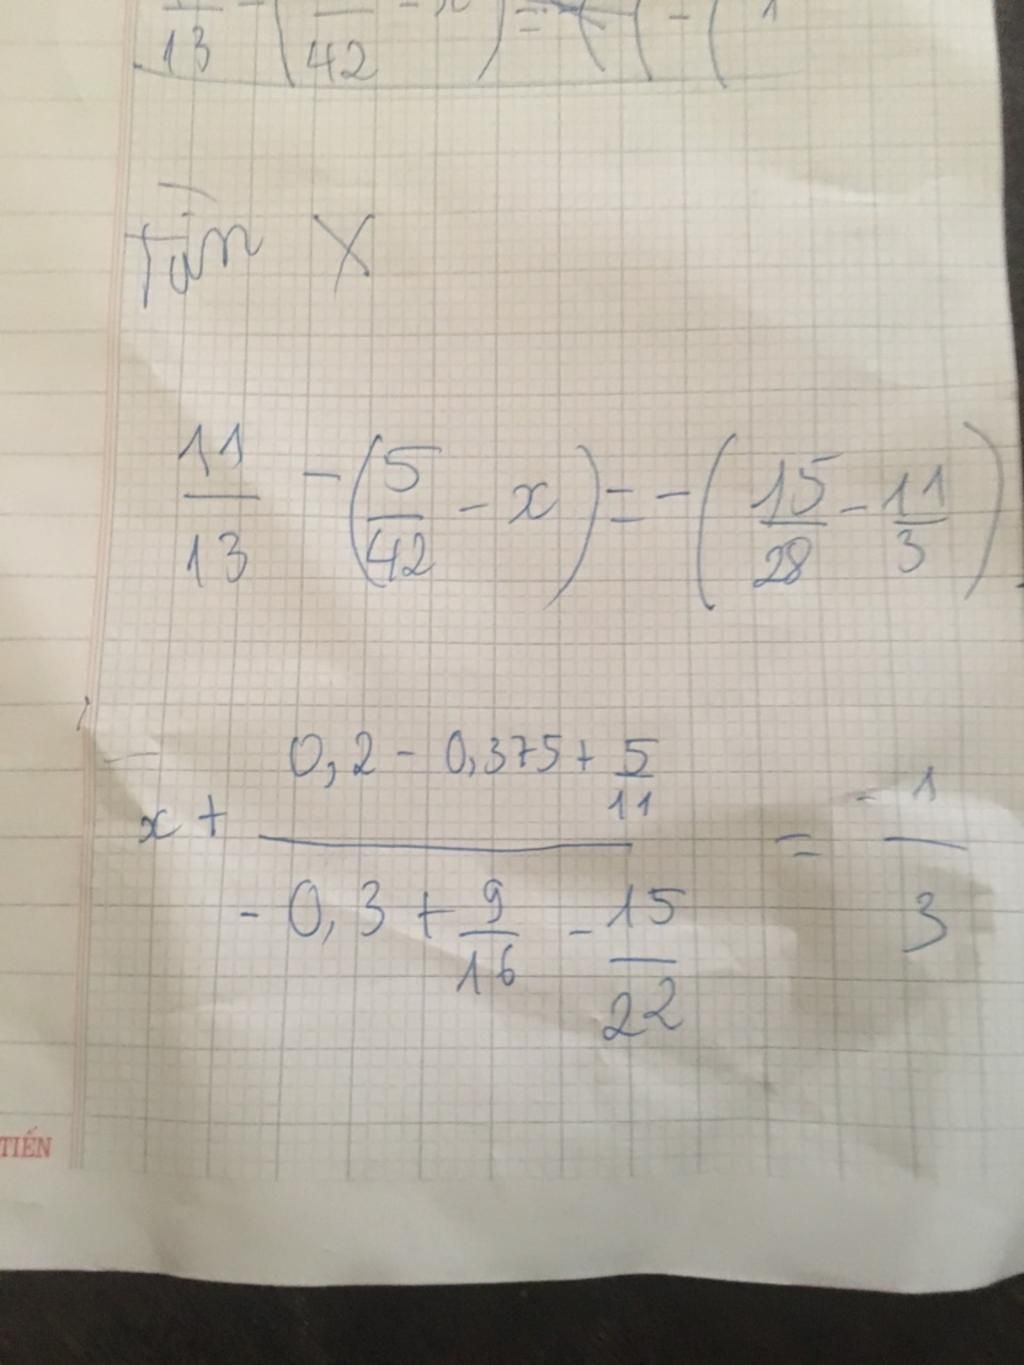 13 - ( 42 - x ) =
Tìm X
11/13 - (5/42 - x) = - (15/28 - 11/3)
x + (0,2 - 0,375 + 5/11)/(-0,3 + 9/16 - 15/22) = -1/3
TIẾN